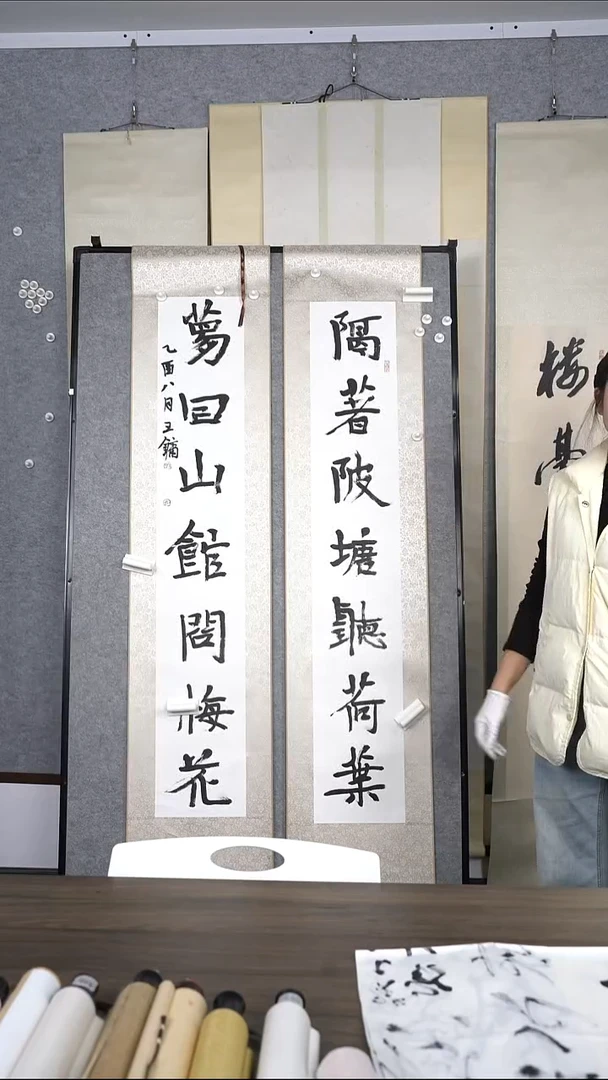 隔着陂塘聽荷葉
夢回山館問梅花
乙酉八月王鏞
楼